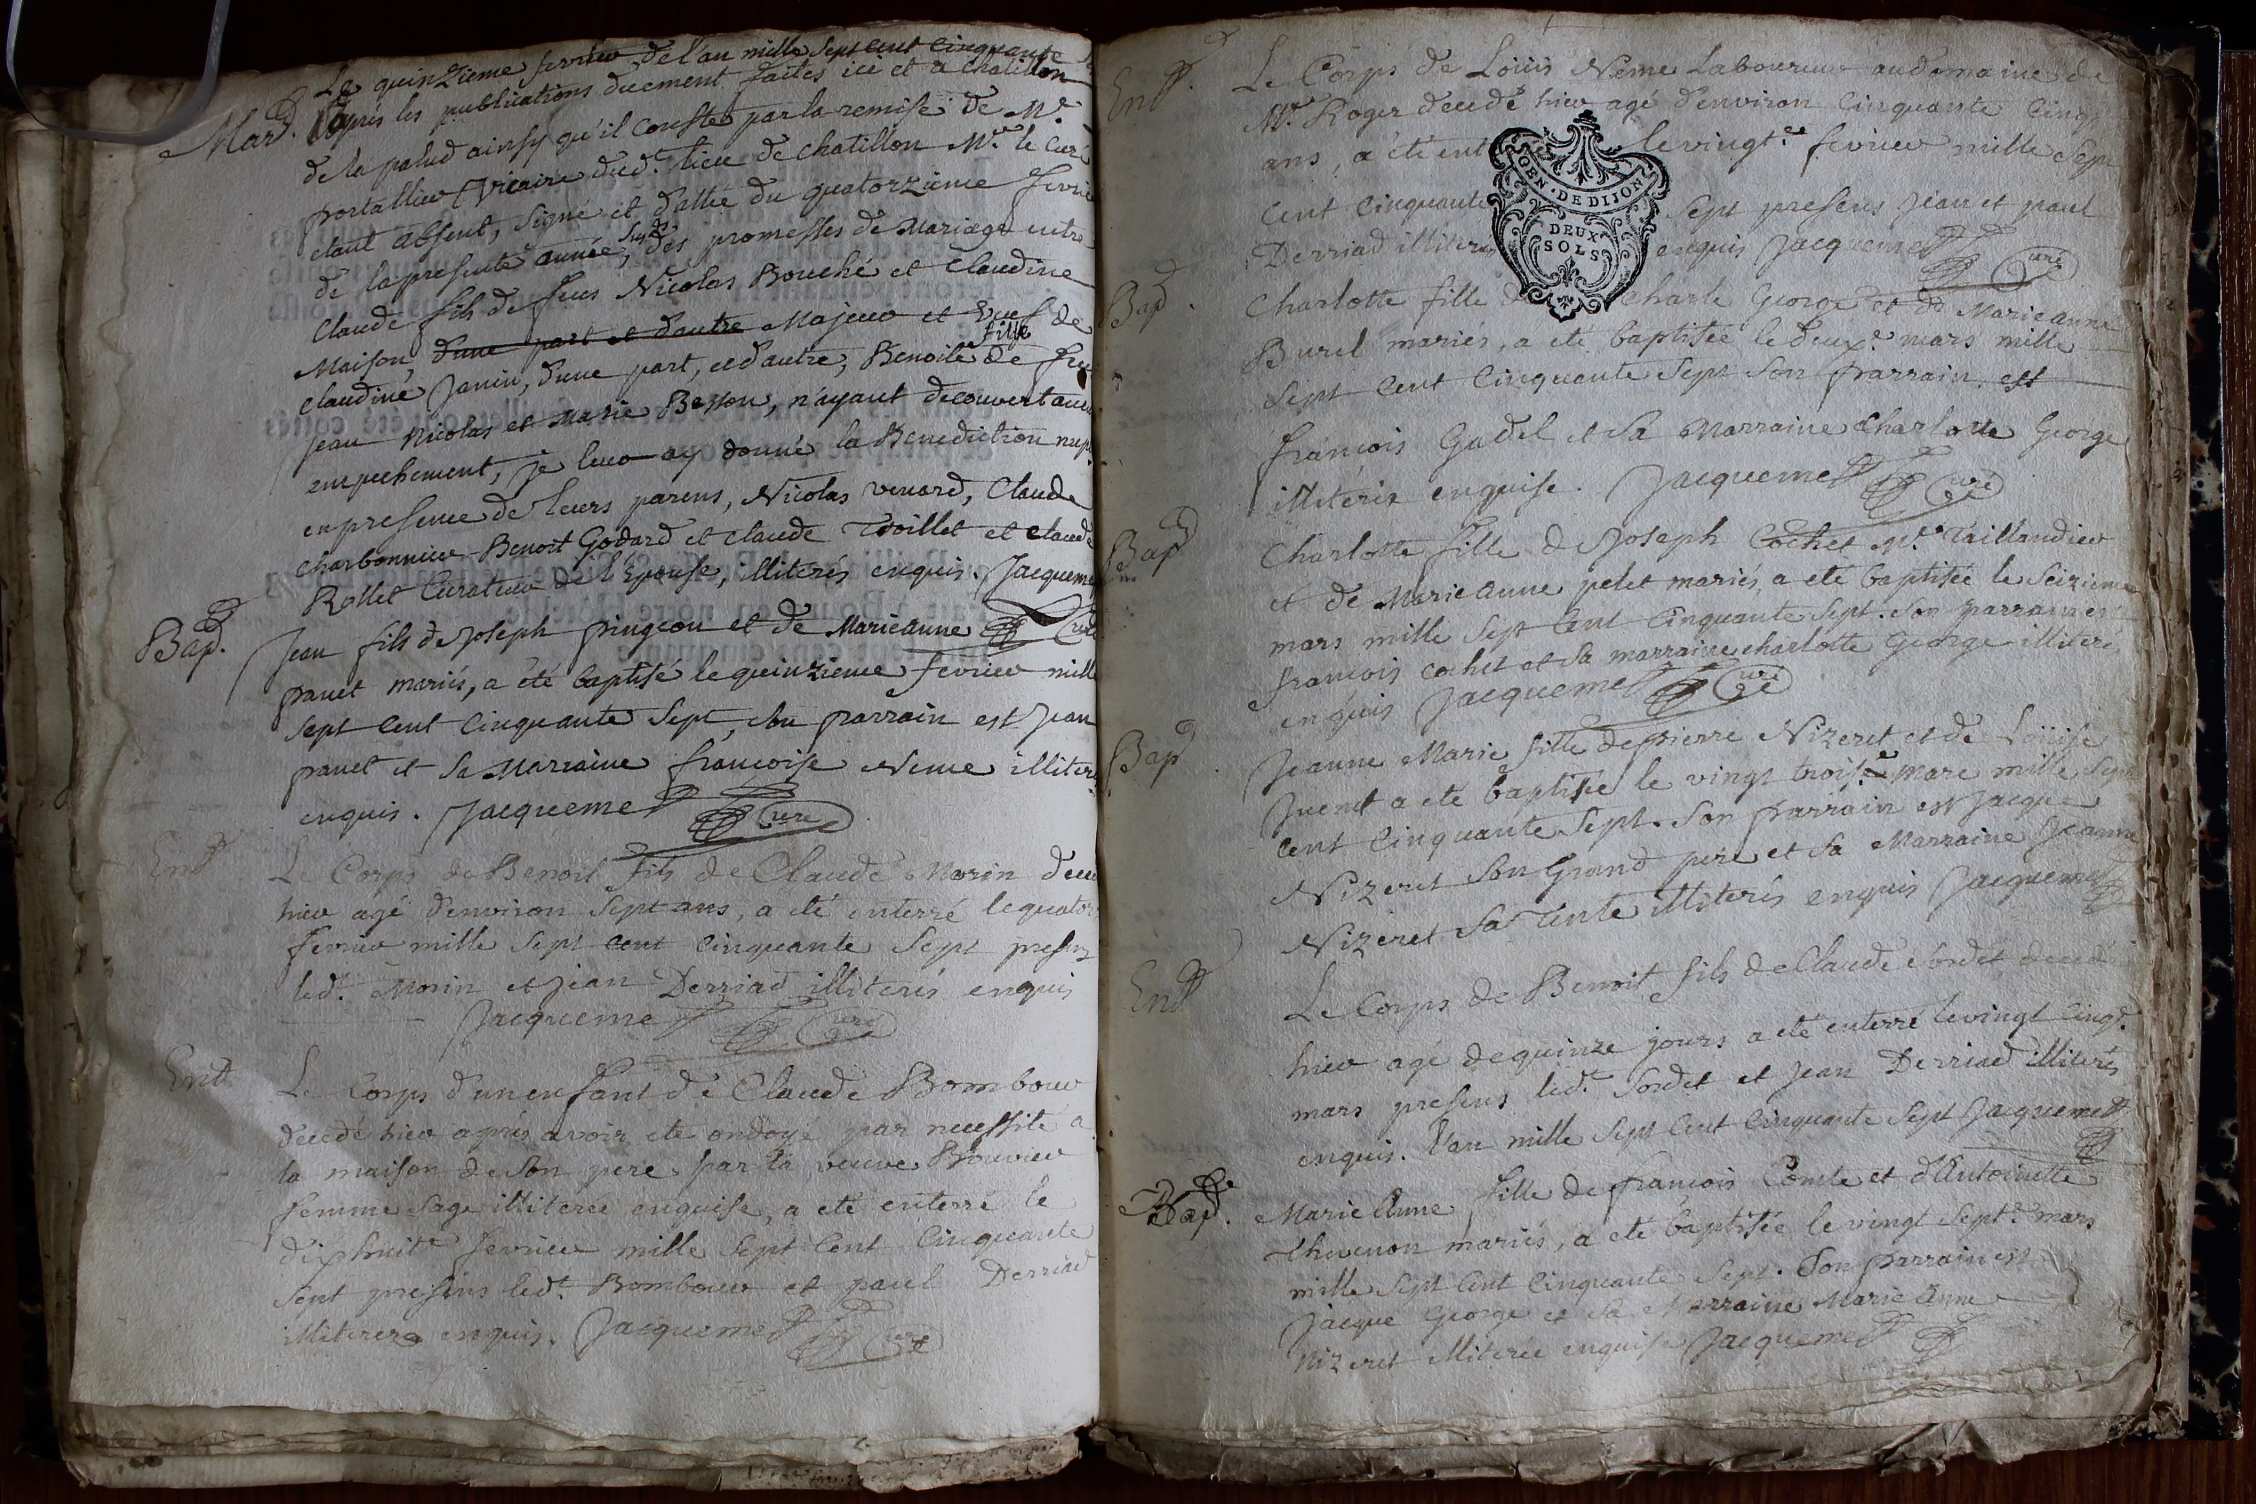 Le quinzieme fevrier de l'an mille sept cent cinquante
Mard. Après les publications duement faites ici et a chatillon
de la palud ainsy qu'il conste par la remise de Mr.
portallier Vicaire dud. lieu de chatillon Mr. le curé
etant absent, signé et datté du quatorzieme fevrie
de la presente année, susd. des promesses de Mariage entre
Claude fils de feus Nicolas Bouché et Claudine
Maison, d'une part et d'autre Majeur et Veuf de
claudine Janin, d'une part, et d'autre, Benoite fille de feu
jean Nicolas et Marie Besson, n'ayant decouvert aucu
empechement, je leur ay donné la Benediction nupt.
en presence de leurs parens, Nicolas venard, Claude
charbonnier Benoit Godard et claude Troillet et claude
Rollet Curateur de l'Epouse, illiterés enquis. Jacqueme
Curé
Bap. Jean fils de Joseph pingeon et de Marieanne
panet mariés, a été baptisé le quinzieme fevrier mille
sept cent cinquante sept, son parrain est Jean
panet et sa Marraine francoise Neme illiteré
enquis. Jacquemet Curé
Ent. Le Corps de Benoit fils de Claude Morin dece
hier agé d'environ sept ans, a eté enterré le quator
fevrier mille sept cent cinquante sept presens
led. Morin et jean Derriad illiterés enquis
Jacquemet Curé
Ent. Le Corps d'un enfant de Claude Bombour
decedé hier après avoir eté ondoyé par necessité a
la maison de son pere par la veuve Bouvier
femme sage illiterée enquise, a eté enterré le
dixhuite fevrier mille sept cent cinquante
sept presens led. Bombour et paul Derriad
illiterés enquis. Jacquemet Curé
Ent. Le Corps de Loüis Neme Laboureur au domaine de
Mr. Roger decedé hier agé d'environ cinquante cinq
ans, a été ent le vingt.e fevrier mille sept
cent cinquante sept presens jean et paul
Derriad illiterés enquis Jacquemet Curé
GEN. DE DIJON
DEUX
SOLS
Bap. Charlotte fille de charle George et de Marieanne
Burel mariés, a eté baptisée le deux.e mars mille
sept cent cinquante sept son parrain est
françois Gadel et sa Marraine Charlotte George
illiterés enquise. Jacquemet Curé
Bap. Charlotte fille de Joseph Cochet Me. Taillandier
et de Marieanne pelet mariés, a eté baptisée le seizieme
mars mille sept cent cinquante sept. son parrain est
francois cochet et sa marraine charlotte George illiteré
enquis Jacquemet Curé
Bap. Jeanne Marie fille de pierre Nizeret et de Loüise
Juenet a eté baptisée le vingt trois.e mars mille sept
cent cinquante sept. son parrain est jacque
Nizeret son Grand pere et sa Marraine Jeanne
Nizeret sa Tente illiterés enquis Jacquemet
Ent. Le Corps de Benoit fils de Claude Sordet decedé
hier agé de quinze jours a eté enterré le vingt cinq.e
mars presens led. Sordet et jean Derriad illiterés
enquis. l'an mille sept cent cinquante sept Jacquemet
Bap. Marie Anne fille de francois Comte et d'Antoinette
thevenon mariés, a eté baptisée le vingt sept.e mars
mille sept cent cinquante sept. Son parrain est
jacque George et sa Marraine Marie Anne
Nizeret illiterée enquise Jacquemet